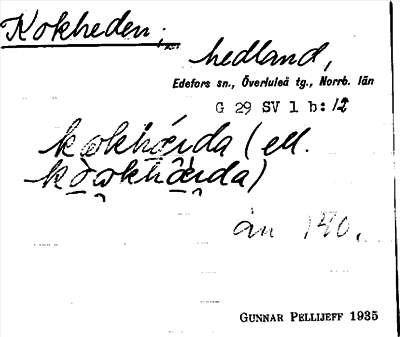 Kokheden,
hedland,
Edefors sn., Överluleå tg., Norrb. län
G 29 SV 1 b: 12
(ell.
än 140.
GUNNAR PELLIJEFF 1935